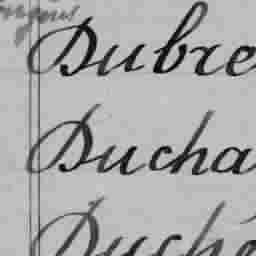 Dubre
Ducha
Duché